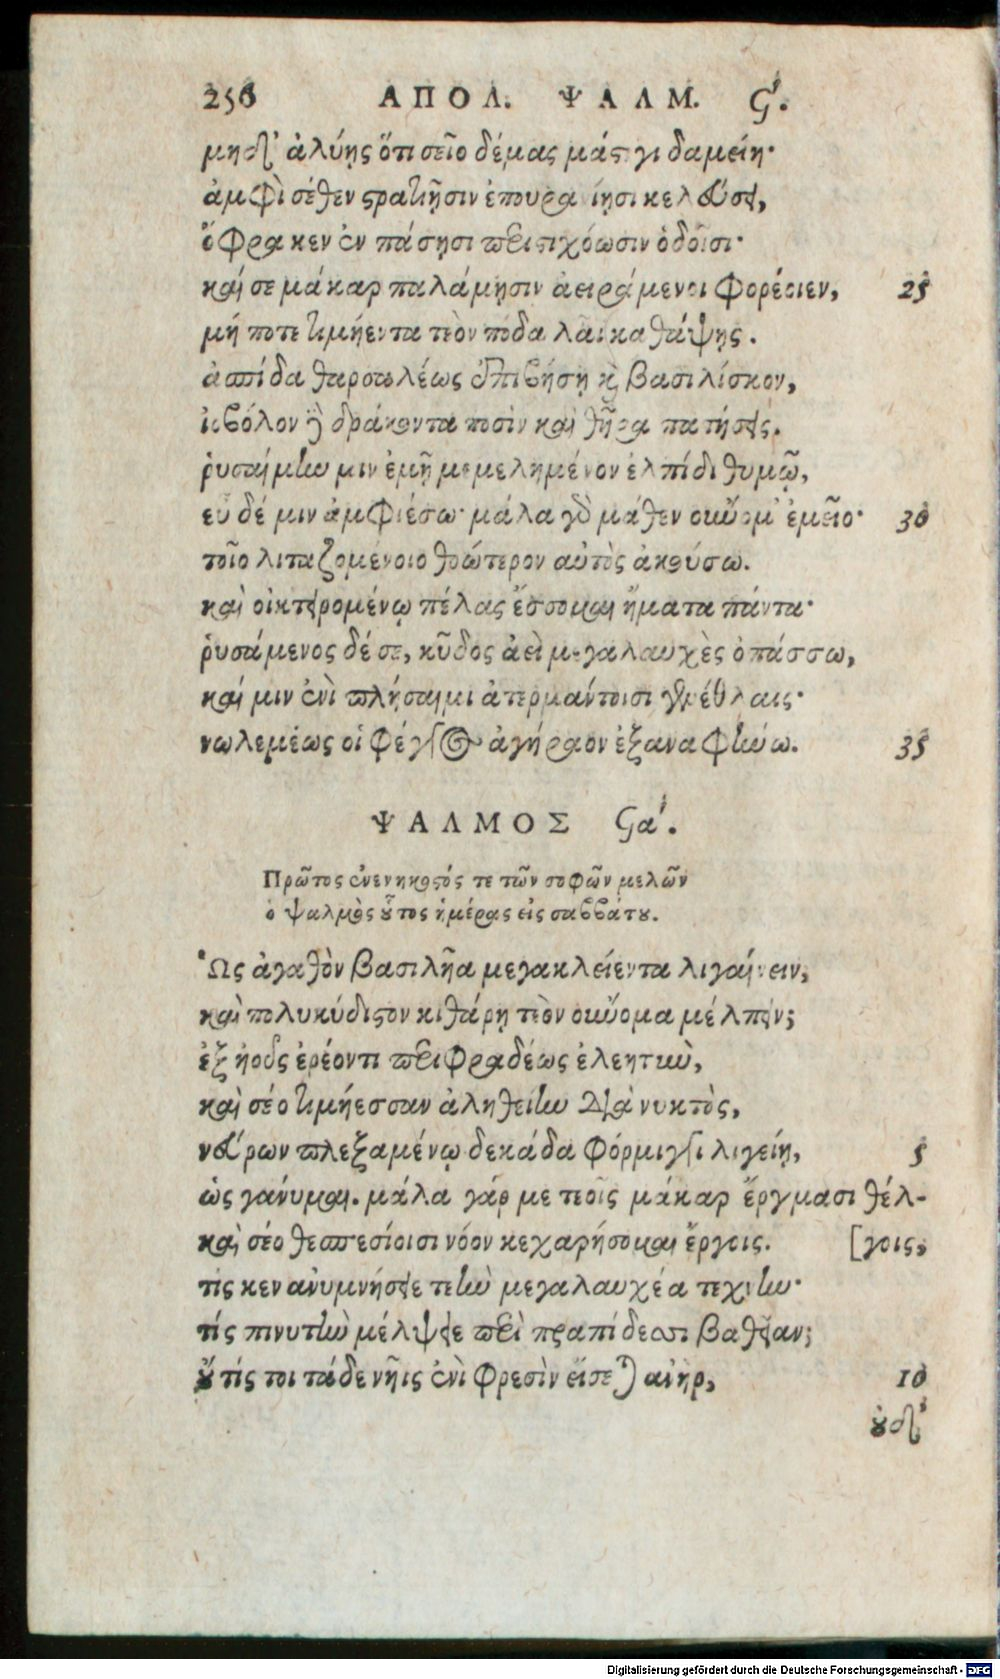 256 ΑΠΟΛ. ΨΑΛΜ. Ϛ'.
μηδ' ἀλύῃς ὅτι σεῖο δέμας μάστιγι δαμείη·
ἀμφὶ σέθεν στρατιῇσιν ἐπουρανίῃσι κελεύσει,
ὄφρα κεν ἐν πάσῃσι περιστιχόωσιν ὁδοῖσι·
καί σε μάκαρ παλάμῃσιν ἀειράμενοι φορέοιεν, 25
μή ποτε τιμήεντα τεὸν πόδα λᾶϊ καθάψῃς.
ἀσπίδα θαρσαλέως ἐπιβήσῃ καὶ βασιλίσκον,
ἰοβόλον δὲ δράκοντα ποσὶν καὶ θῆρα πατήσεις.
ῥυσαίμην μιν ἐμῇ μεμελημένον ἐλπίδι θυμῷ,
εὖ δέ μιν ἀμφιέσω· μάλα γὰρ μάθεν οὔνομ' ἐμεῖο· 30
τοῖο λιταζομένοιο θοώτερον αὐτὸς ἀκούσω.
καὶ οἰκτειρομένῳ πέλας ἔσσομαι ἤματα πάντα·
ῥυσάμενος δέ σε, κῦδος ἀεὶ μεγαλαυχὲς ὀπάσσω,
καί μιν ἐνὶ πλήσαιμι ἀτερμάντοισι γενέθλαις·
νωλεμέως οἱ φέγγος ἀγήραον ἐξαναφήνω. 35
ΨΑΛΜΟΣ Ϛα'.
Πρῶτος ἐνενηκοστός τε τῶν σοφῶν μελῶν
ὁ ψαλμὸς οὗτος ἡμέρας εἰς σαββάτου.
Ὡς ἀγαθὸν βασιλῆα μεγακλείεντα λιγαίνειν,
καὶ πολυκύδιστον κιθάρῃ τεὸν οὔνομα μέλπειν;
ἐξ ἠοῦς ἐρέοντι περιφραδέως ἐλεητὺν,
καὶ σέο τιμήεσσαν ἀληθείην διὰ νυκτὸς,
νεύρων πλεξαμένῳ δεκάδα φόρμιγγι λιγείῃ, 5
ὡς γάνυμαι. μάλα γάρ με τεοῖς μάκαρ ἔργμασι θέλ-
καὶ σέο θεσπεσίοισι νόον κεχαρήσομαι ἔργοις. [γοις,
τίς κεν ἀνυμνήσειε τεὴν μεγαλαυχέα τεχνην·
τίς πινυτὴν μέλψειε περὶ πραπίδεσσι βαθεῖαν;
οὔτίς τοι τάδε νῆις ἐνὶ φρεσὶν εἴσεται ἀνὴρ, 10
οὐδ'
Digitalisierung gefördert durch die Deutsche Forschungsgemeinschaft - DFG